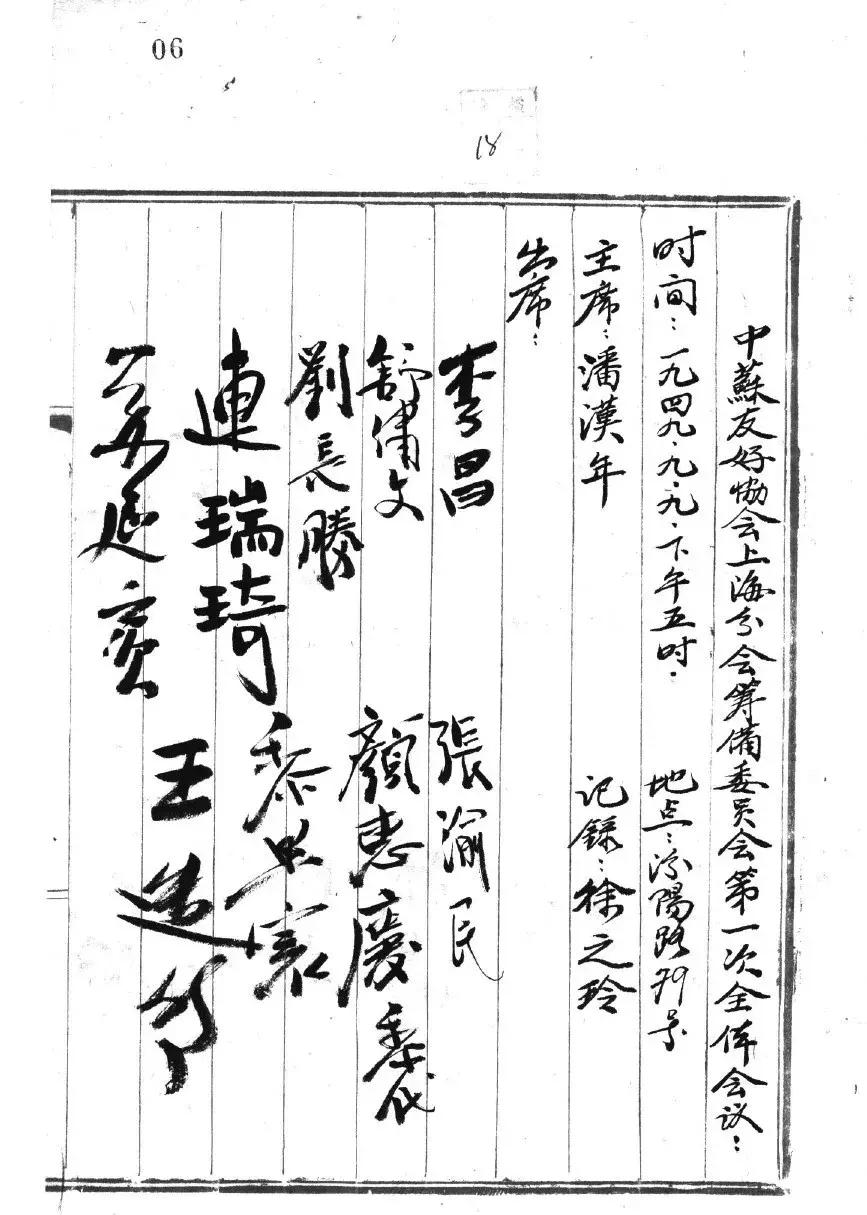 06
18
中蘇友好协会上海分会筹備委员会第一次全体会议：
时间：一九四九·九·九·下午五时· 地点：汾陽路79号
主席：潘漢年 记録：徐之玲
出席：
李昌 張渝民
舒繡文 顏惠慶
劉長勝
連瑞琦
王造